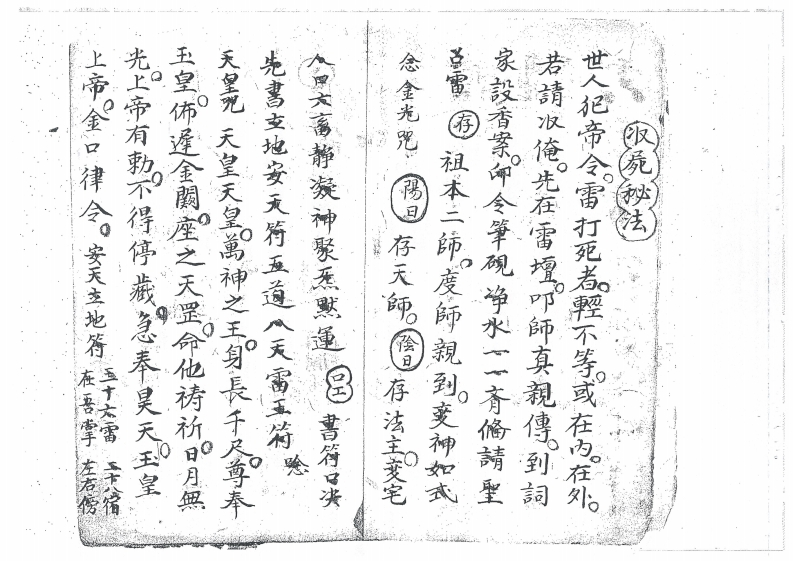 収屍秘法
世人犯帝令。雷打死者。輕不等。或在内。在外。
若請収俺。先在雷壇。叩師真親傳。到詞
家設香案。命令筆硯净水一一齊俻請聖
召雷 存 祖本二師。度師親到。变神如式
念金光咒 陽日 存天師。陰日 存法主。变宅
静凝神聚炁默運 書符口决
先書立地安天符五道八天雷玉符 唸
天皇咒 天皇天皇。萬神之王。身長千尺。尊奉
玉皇。佈遲金闕。座之天罡。命他祷祈。日月無
光。上帝有勅。不得停藏。急奉昊天玉皇
上帝。金口律令。安天立地符 五十六雷 二十八宿
在吾掌 左右傍